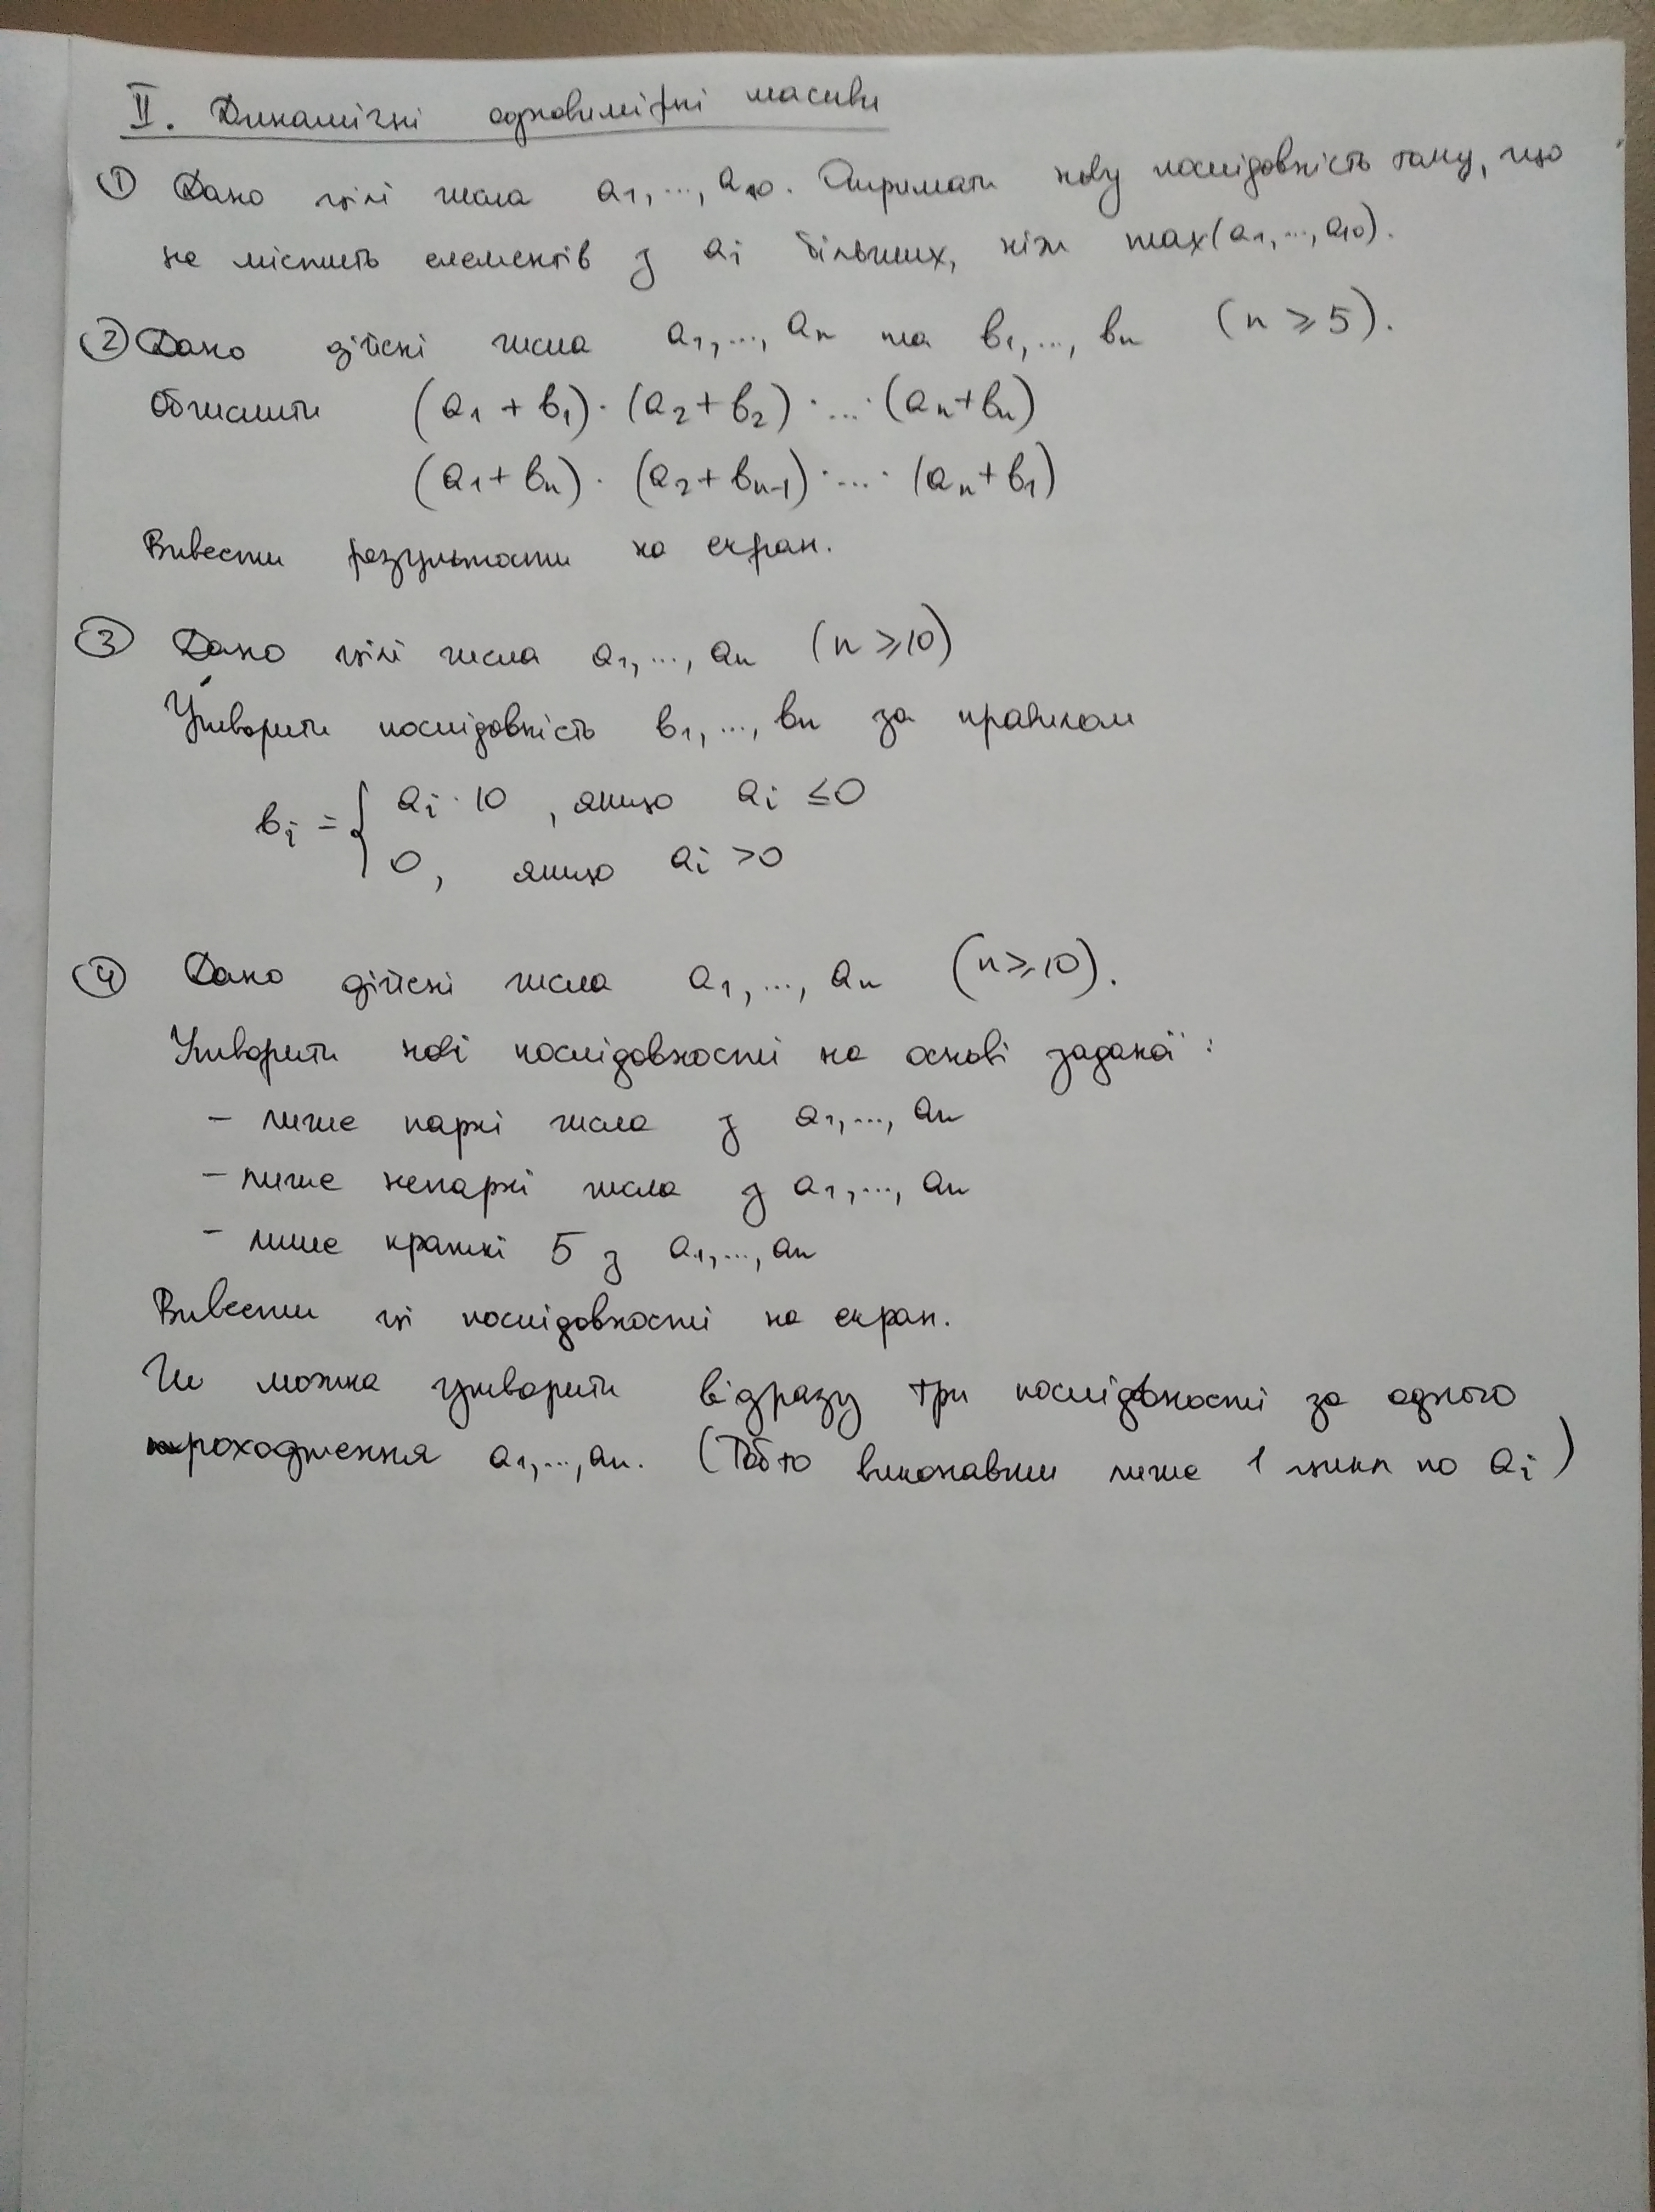 II. Динамічні одновимірні масиви
① Дано цілі числа a₁, ..., a₁₀. Отримати нову послідовність таку, що
не містить елементів з aᵢ більших, ніж max(a₁, ..., a₁₀).
② Дано дійсні числа a₁, ..., aₙ та b₁, ..., bₙ (n ≥ 5).
Обчислити (a₁ + b₁) · (a₂ + b₂) · ... · (aₙ + bₙ)
(a₁ + bₙ) · (a₂ + bₙ₋₁) · ... · (aₙ + b₁)
Вивести результати на екран.
③ Дано цілі числа a₁, ..., aₙ (n ≥ 10)
Утворити послідовність b₁, ..., bₙ за правилом
bᵢ = { aᵢ · 10 , якщо aᵢ ≤ 0
0, якщо aᵢ > 0
④ Дано дійсні числа a₁, ..., aₙ (n ≥ 10).
Утворити нові послідовності на основі заданої :
- лише парні числа з a₁, ..., aₙ
- лише непарні числа з a₁, ..., aₙ
- лише кратні 5 з a₁, ..., aₙ
Вивести ці послідовності на екран.
Чи можна утворити відразу три послідовності за одного
проходження a₁, ..., aₙ. (Тобто виконавши лише 1 цикл по aᵢ)